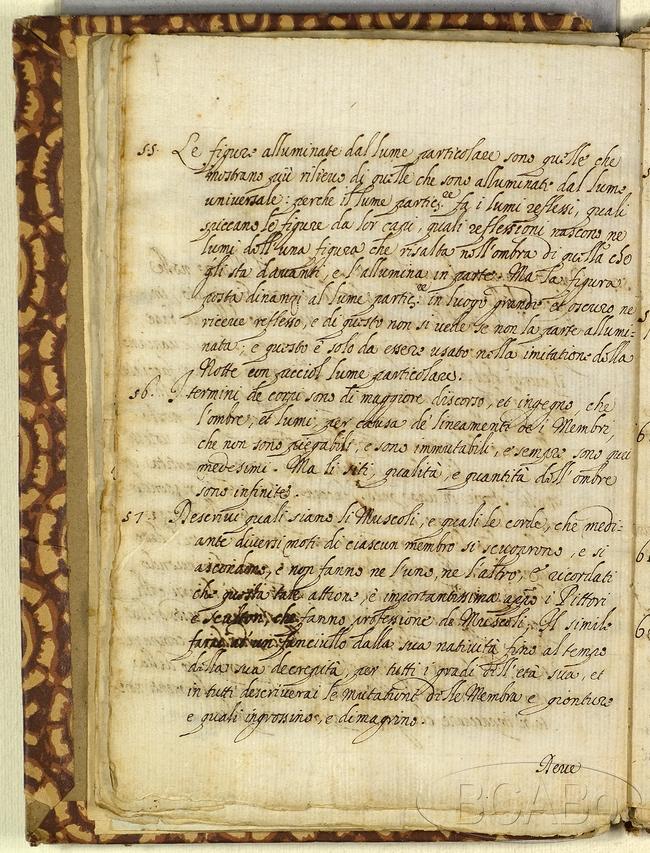 55. Le figure alluminate dal lume particolare sono quelle che
mostrano più rilieuo di quelle che sono alluminate dal lume
uniuersale: perche il lume partic:re fà i lumi reflessi, quali
spiccano le figure da lor capi, quali reflessioni nascono ne
lumi dell'una figura che risalta nell'ombra di quella che
gli sta dauanti, e l'allumina in parte. Ma la figura
posta dinanzi al lume partic:re in luogo grande et oscuro ne
riceue reflesso, e di questo non si uede se non la parte allumi-
nata, e questo è solo da essere usato nella imitatione della
Notte con picciol lume particolare.
56. I termini de corpi sono di maggiore discorso, et ingegno, che
l'ombre, et lumi, per causa de' lineamenti de i Membri,
che non sono piegabili, e sono immutabili, e sempre sono quei
medesimi. Ma li siti, qualità, e quantità dell'ombre
sono infinite.
57. Descriui quali siano li Muscoli, e quali le corde, che medi-
ante diuersi moti di ciascun membro si scuoprono, e si
ascondono, e non fanno ne l'uno, ne l'altro, & ricordati
che questa tale attione, è importantissima appo i Pittori
e Scultori, che fanno professione de Muscoli, Il simile
farai ad un fanciullo dalla sua natiuità fino al tempo
della sua decrepità, per tutti i gradi dell'età sua, et
in tutti descriuerai le mutationi delle Membra e gionture
e quali ingrossino, e dimagrino.
Deue
BCABo